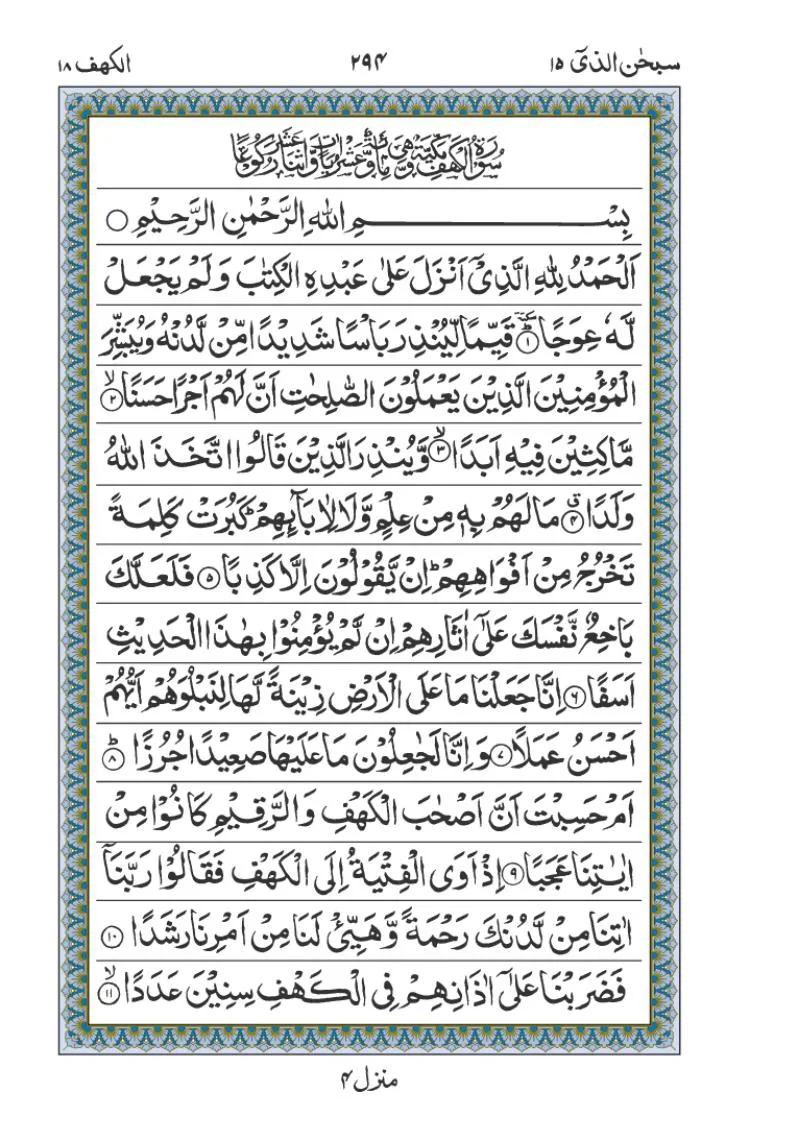 سبحٰن الذیۤ ۱۵
۲۹۴
الكهف ۱۸
سُوْرَةُ الْكَهْفِ مَكِّيَّةٌ وَّهِىَ مِائَةٌ وَّعَشْرُ اٰيَاتٍ وَّاثْنَا عَشَرَ رُكُوْعًا
بِسْــــــــــــــــمِ اللهِ الرَّحْمٰنِ الرَّحِيْمِ ○
اَلْحَمْدُ لِلّٰهِ الَّذِىْۤ اَنْزَلَ عَلٰى عَبْدِهِ الْكِتٰبَ وَلَمْ يَجْعَلْ
لَّهٗ عِوَجًا ؕ ﴿۱﴾ قَيِّمًا لِّيُنْذِرَ بَاْسًا شَدِيْدًا مِّنْ لَّدُنْهُ وَيُبَشِّرَ
الْمُؤْمِنِيْنَ الَّذِيْنَ يَعْمَلُوْنَ الصّٰلِحٰتِ اَنَّ لَهُمْ اَجْرًا حَسَنًا ۙ ﴿۲﴾
مَّاكِثِيْنَ فِيْهِ اَبَدًا ۙ ﴿۳﴾ وَّيُنْذِرَ الَّذِيْنَ قَالُوا اتَّخَذَ اللهُ
وَلَدًا ۗ ﴿۴﴾ مَا لَهُمْ بِهٖ مِنْ عِلْمٍ وَّلَا لِاٰبَآىِٕهِمْ ؕ كَبُرَتْ كَلِمَةً
تَخْرُجُ مِنْ اَفْوَاهِهِمْ ؕ اِنْ يَّقُوْلُوْنَ اِلَّا كَذِبًا ﴿۵﴾ فَلَعَلَّكَ
بَاخِعٌ نَّفْسَكَ عَلٰٓى اٰثَارِهِمْ اِنْ لَّمْ يُؤْمِنُوْا بِهٰذَا الْحَدِيْثِ
اَسَفًا ﴿۶﴾ اِنَّا جَعَلْنَا مَا عَلَى الْاَرْضِ زِيْنَةً لَّهَا لِنَبْلُوَهُمْ اَيُّهُمْ
اَحْسَنُ عَمَلًا ﴿۷﴾ وَاِنَّا لَجٰعِلُوْنَ مَا عَلَيْهَا صَعِيْدًا جُرُزًا ؕ ﴿۸﴾
اَمْ حَسِبْتَ اَنَّ اَصْحٰبَ الْكَهْفِ وَالرَّقِيْمِ كَانُوْا مِنْ
اٰيٰتِنَا عَجَبًا ﴿۹﴾ اِذْ اَوَى الْفِتْيَةُ اِلَى الْكَهْفِ فَقَالُوْا رَبَّنَاۤ
اٰتِنَا مِنْ لَّدُنْكَ رَحْمَةً وَّهَيِّئْ لَنَا مِنْ اَمْرِنَا رَشَدًا ﴿۱۰﴾
فَضَرَبْنَا عَلٰٓى اٰذَانِهِمْ فِى الْكَهْفِ سِنِيْنَ عَدَدًا ۙ ﴿۱۱﴾
منزل ۴